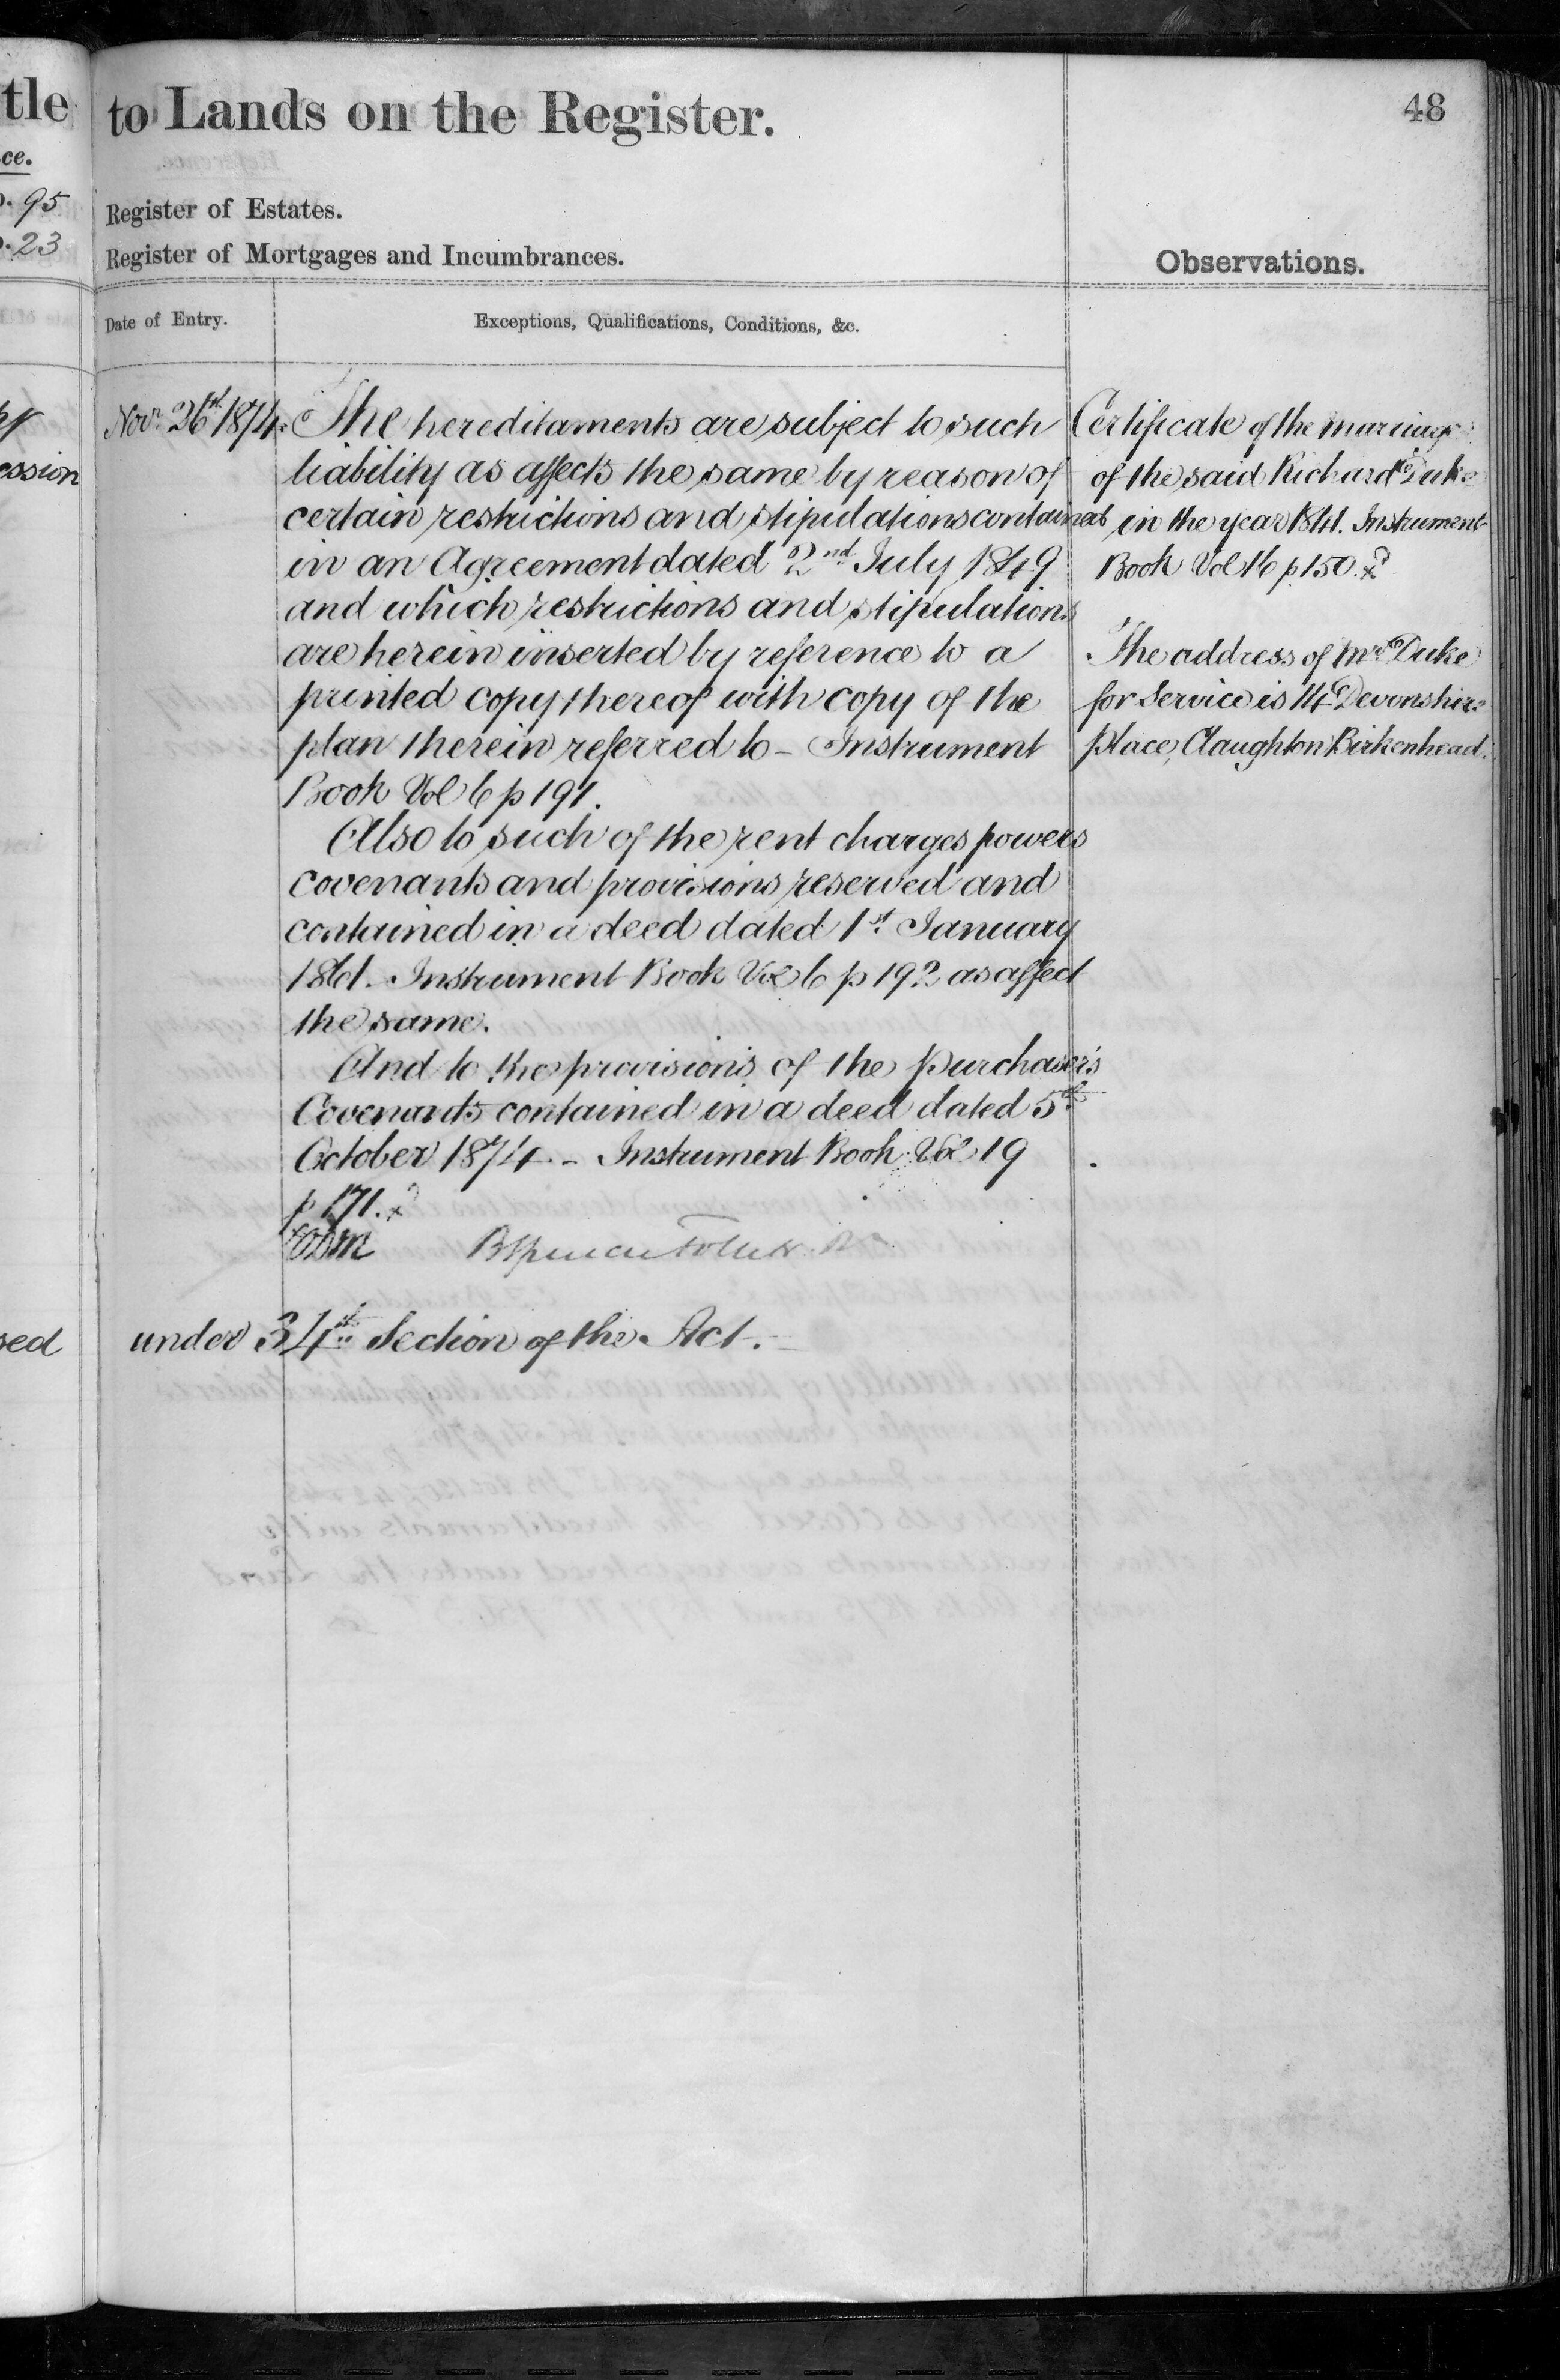 tle
ce.
p. 95
p. 23
ession
sed
to Lands on the Register.
48
Register of Estates.
Register of Mortgages and Incumbrances.
Observations.
Date of Entry.
Exceptions, Qualifications, Conditions, &c.
Novr. 26th 1874.
The hereditaments are subject to such
liability as affects the same by reason of
certain restrictions and stipulations contained
in an Agreement dated 2nd July 1849
and which restrictions and stipulations
are herein inserted by reference to a
printed copy thereof with copy of the
plan therein referred to - Instrument
Book Vol 6 p 191.
Also to such of the rent charges powers
covenants and provisions reserved and
contained in a deed dated 1st January
1861. Instrument Book Vol 6 p 192 as affect
the same.
And to the provisions of the Purchaser's
Covenants contained in a deed dated 5th
October 1874. - Instrument Book Vol 19
p 171.
under 34th Section of the Act. -
Certificate of the marriage
of the said Richard Duke
in the year 1841. Instrument
Book Vol 16 p 150.
The address of Mr. Duke
for Service is 14 Devonshire
place, Claughton Birkenhead.